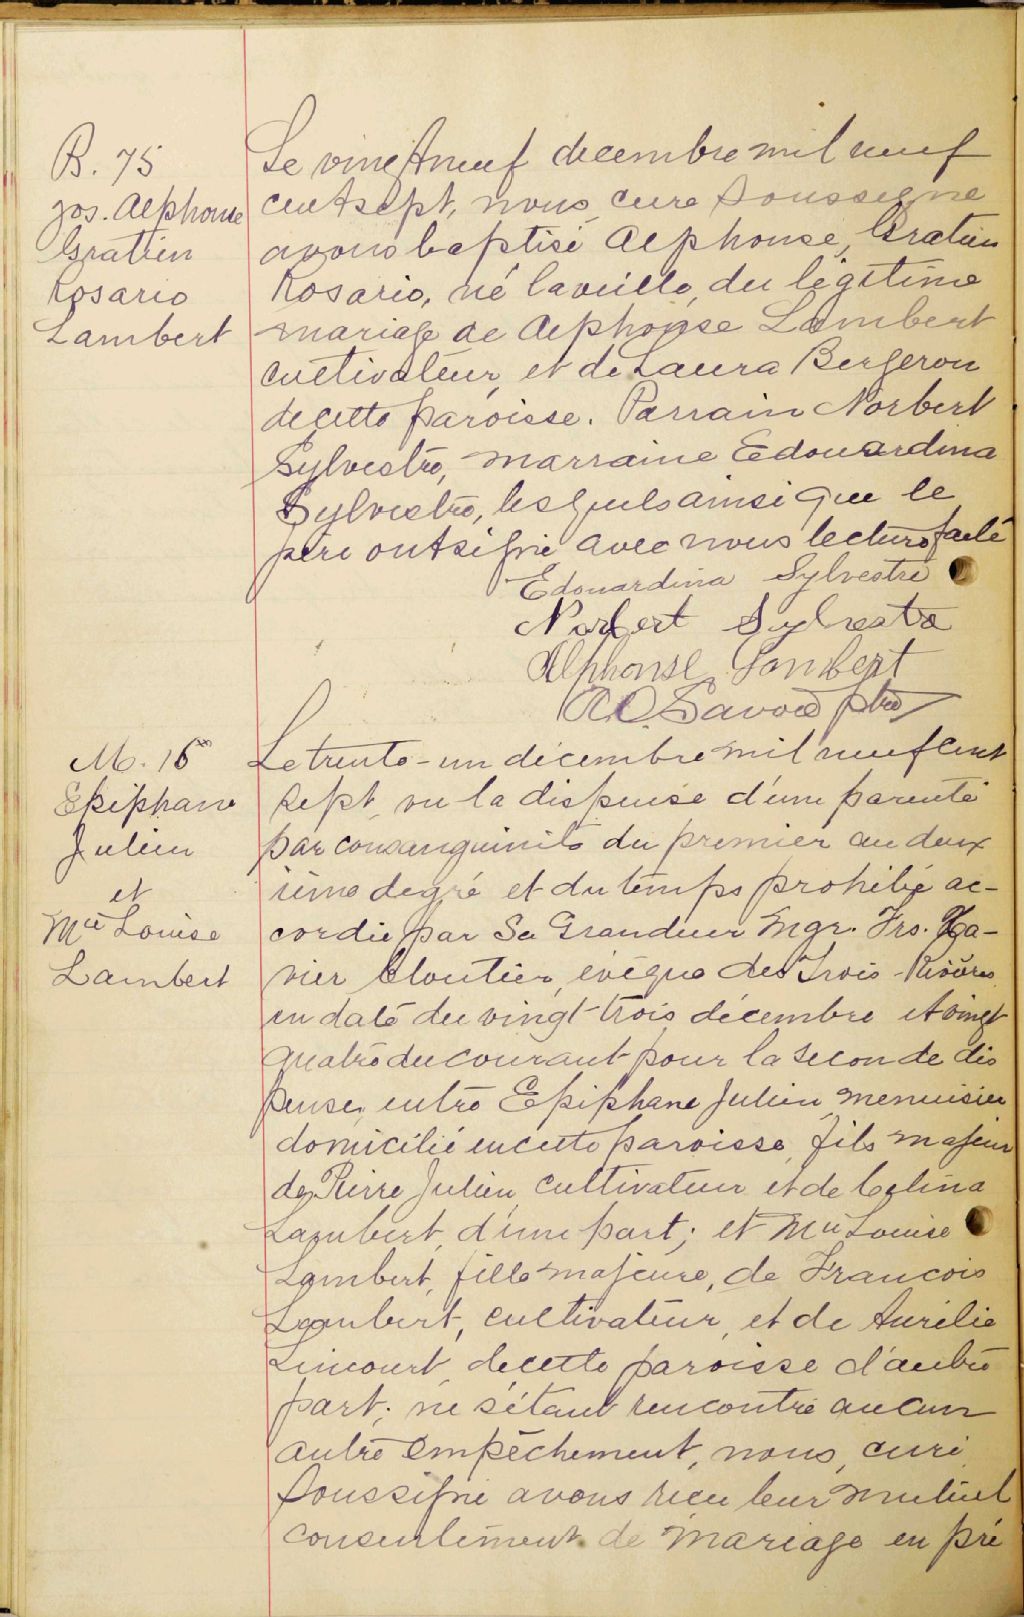 B. 75
Jos. Alphonse
Gratien
Rosario
Lambert
Le vingt neuf decembre mil neuf
cent sept, nous, cure soussigne
avons baptisé Alphonse, Gratien
Rosario, né la veille, du légitime
mariage de Alphonse Lambert
cultivateur, et de Laura Bergeron
de cette paroisse. Parrain Norbert
Sylvestre, marraine Edouardina
Sylvestre, lesquels ainsi que le
père ont signé avec nous lecture faite
Edouardina Sylvestre
Norbert Sylvestre
Alphonse Lambert
Savoie ptre
M. 16
Epiphane
Julien
et
Mie Louise
Lambert
Le trente-un décembre mil neuf cent
sept, vu la dispense d'une parenté
par consanguinité du premier au deux
ième degré et du temps prohibé ac-
cordée par Sa Grandeur Mgr. Frs. Xa-
vier Cloutier, évêque des Trois-Rivières
en date du vingt-trois décembre et vingt
quatre du courant pour la seconde dis
pense, entre Epiphane Julien, menuisier
domicilié en cette paroisse, fils majeur
de Pierre Julien, cultivateur et de Celina
Lambert, d'une part; et Mie Louise
Lambert, fille majeure, de Francois
Lambert, cultivateur, et de Aurélie
Lincourt, de cette paroisse d'autre
part; ne s'étant rencontré aucun
autre empêchement, nous, curé
soussigné avons recu leur mutuel
consentement de mariage en pré